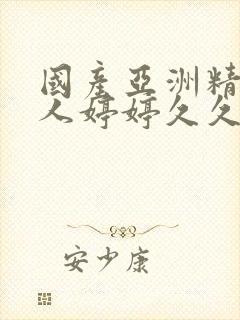 國產亞洲精
人婷婷久久
安少康